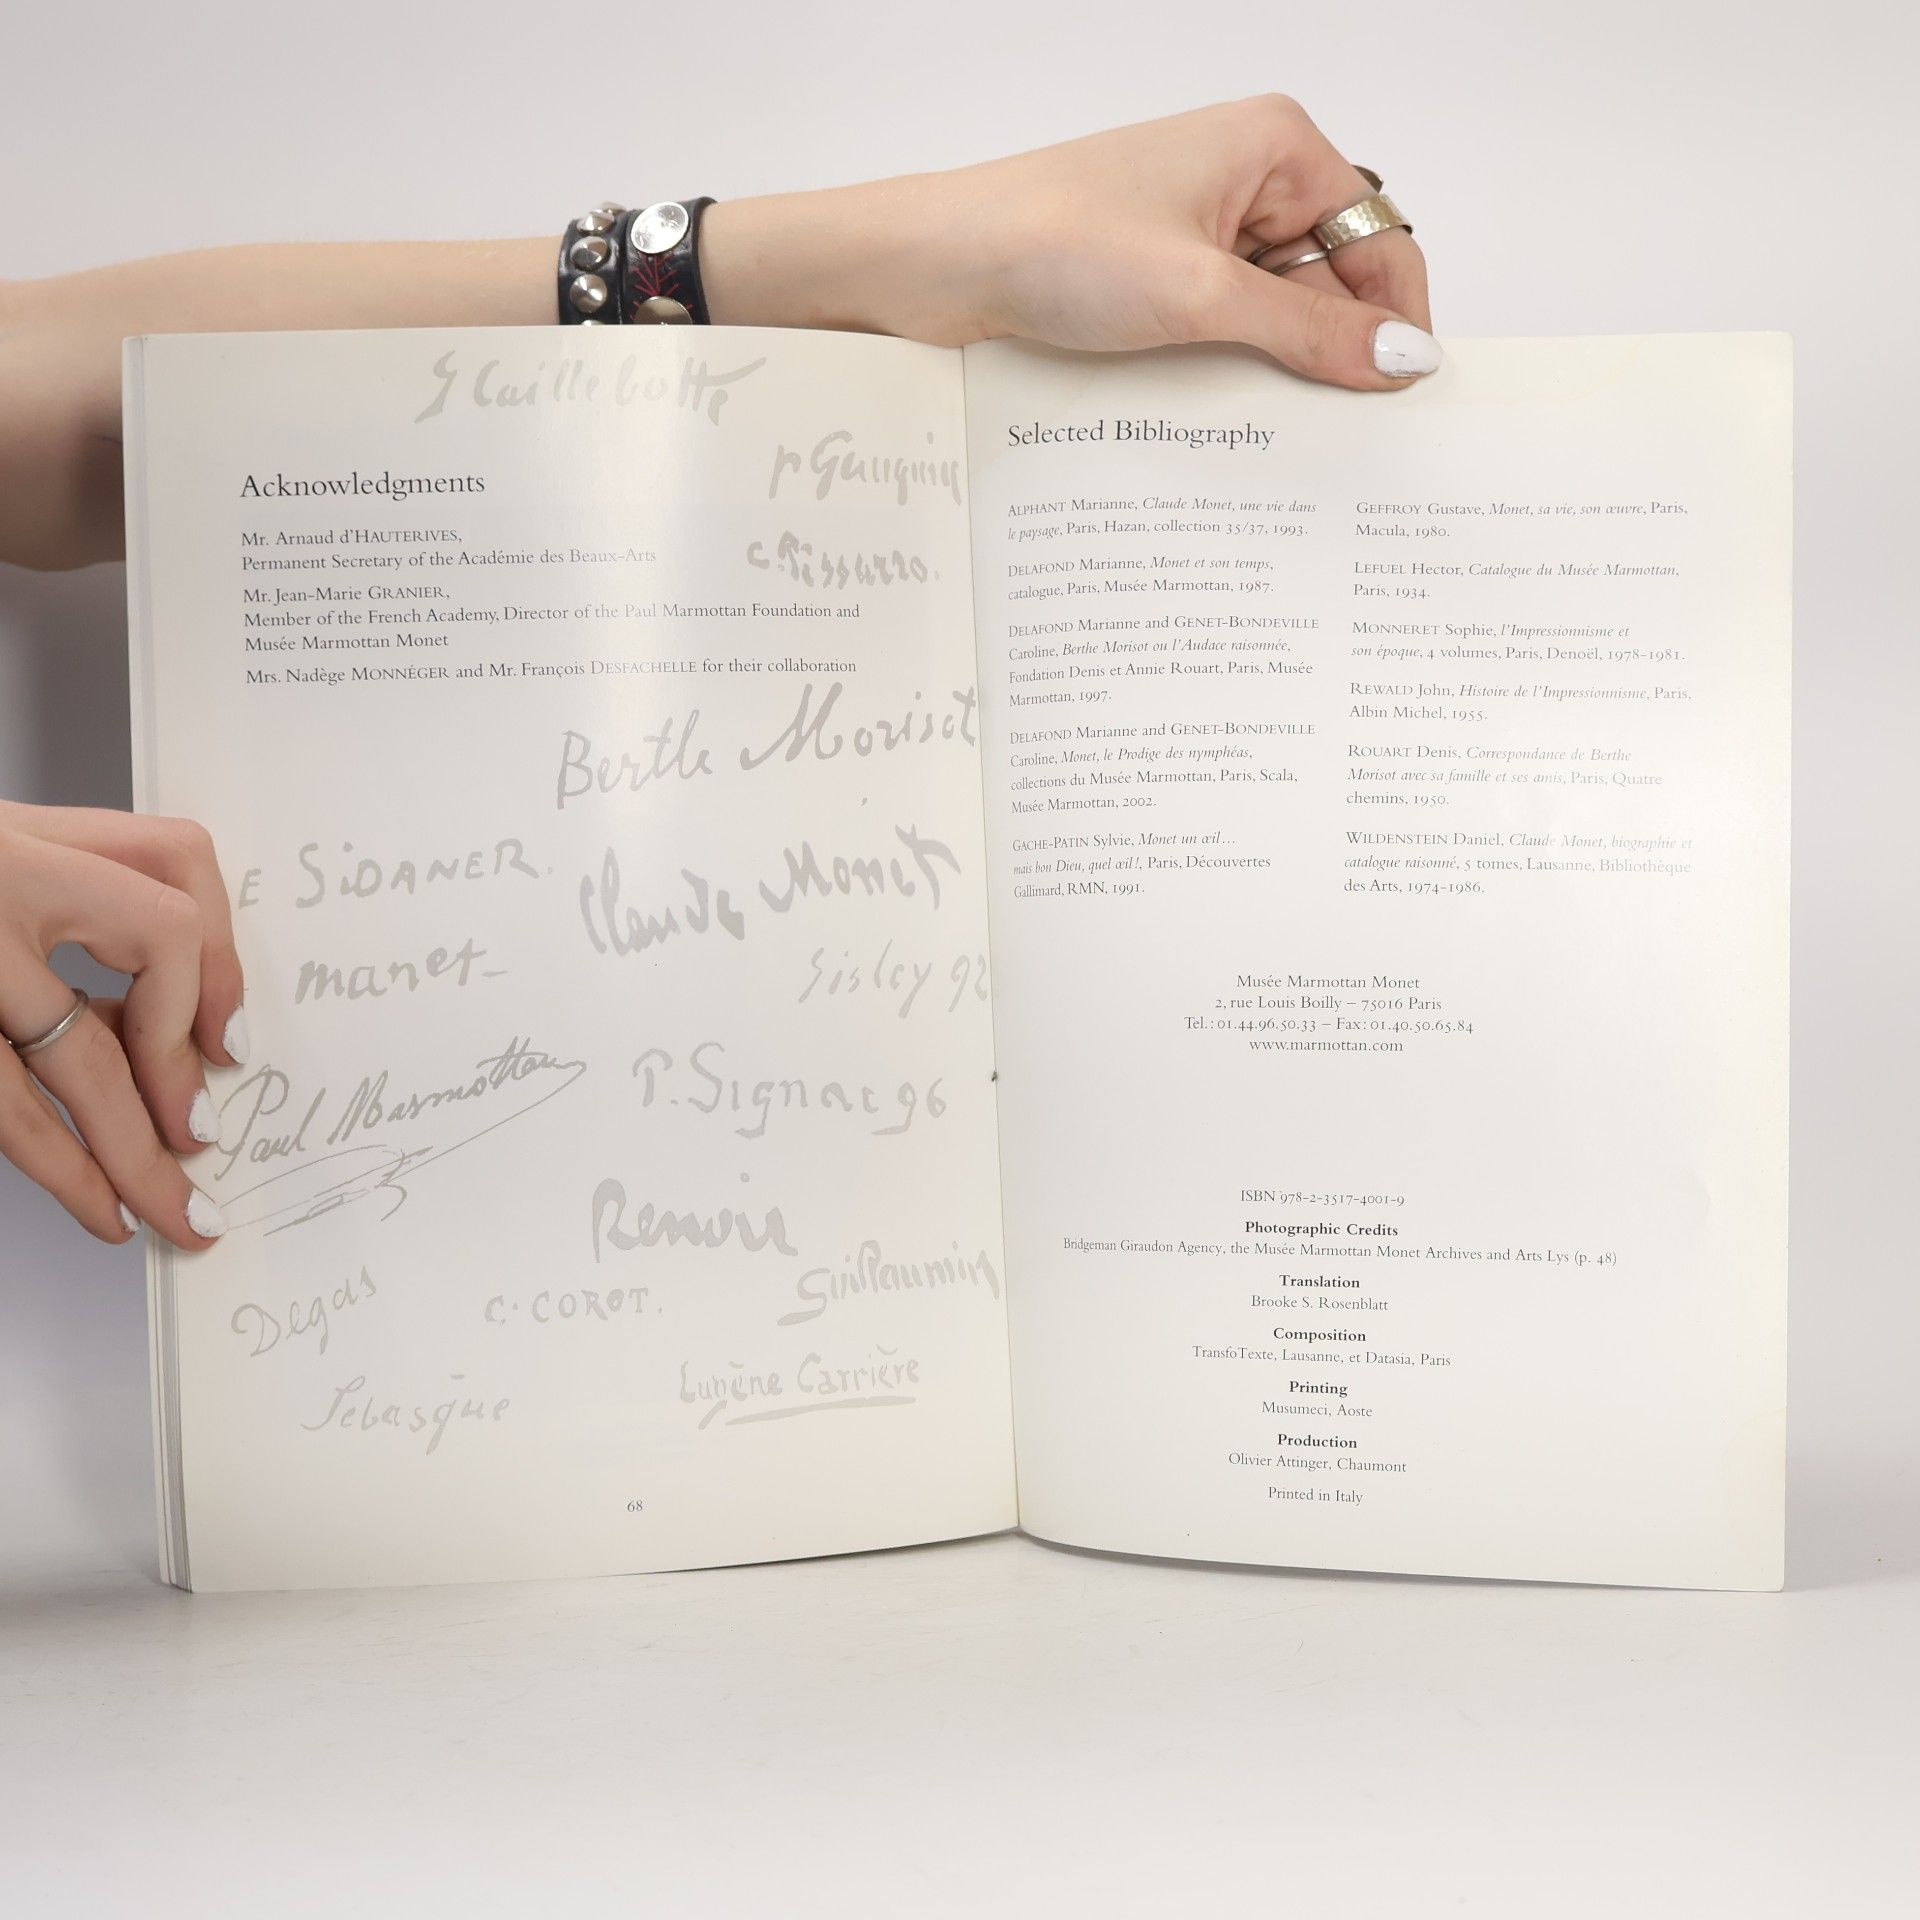 G Caillebotte
P Gauguin
Acknowledgments
Mr. Arnaud d'HAUTERIVES,
Permanent Secretary of the Académie des Beaux-Arts
C. Pissarro.
Mr. Jean-Marie GRANIER,
Member of the French Academy, Director of the Paul Marmottan Foundation and
Musée Marmottan Monet
Mrs. Nadège MONNÉGER and Mr. François DESFACHELLE for their collaboration
Berthe Morisot
E SiDANER.
Claude Monet
manet-
Sisley 92
Paul Marmottan
P. Signac 96
Renoir
Guillaumin
Degas
C. COROT.
Eugène Carrière
Lebasque
68
Selected Bibliography
ALPHANT Marianne, Claude Monet, une vie dans
le paysage, Paris, Hazan, collection 35/37, 1993.
DELAFOND Marianne, Monet et son temps,
catalogue, Paris, Musée Marmottan, 1987.
DELAFOND Marianne and GENET-BONDEVILLE
Caroline, Berthe Morisot ou l'Audace raisonnée,
Fondation Denis et Annie Rouart, Paris, Musée
Marmottan, 1997.
DELAFOND Marianne and GENET-BONDEVILLE
Caroline, Monet, le Prodige des nymphéas,
collections du Musée Marmottan, Paris, Scala,
Musée Marmottan, 2002.
GACHE-PATIN Sylvie, Monet un œil…
mais bon Dieu, quel œil !, Paris, Découvertes
Gallimard, RMN, 1991.
GEFFROY Gustave, Monet, sa vie, son œuvre, Paris,
Macula, 1980.
LEFUEL Hector, Catalogue du Musée Marmottan,
Paris, 1934.
MONNERET Sophie, l'Impressionnisme et
son époque, 4 volumes, Paris, Denoël, 1978-1981.
REWALD John, Histoire de l'Impressionnisme, Paris,
Albin Michel, 1955.
ROUART Denis, Correspondance de Berthe
Morisot avec sa famille et ses amis, Paris, Quatre
chemins, 1950.
WILDENSTEIN Daniel, Claude Monet, biographie et
catalogue raisonné, 5 tomes, Lausanne, Bibliothèque
des Arts, 1974-1986.
Musée Marmottan Monet
2, rue Louis Boilly – 75016 Paris
Tel. : 01.44.96.50.33 – Fax : 01.40.50.65.84
www.marmottan.com
ISBN 978-2-3517-4001-9
Photographic Credits
Bridgeman Giraudon Agency, the Musée Marmottan Monet Archives and Arts Lys (p. 48)
Translation
Brooke S. Rosenblatt
Composition
TransfoTexte, Lausanne, et Datasia, Paris
Printing
Musumeci, Aoste
Production
Olivier Attinger, Chaumont
Printed in Italy